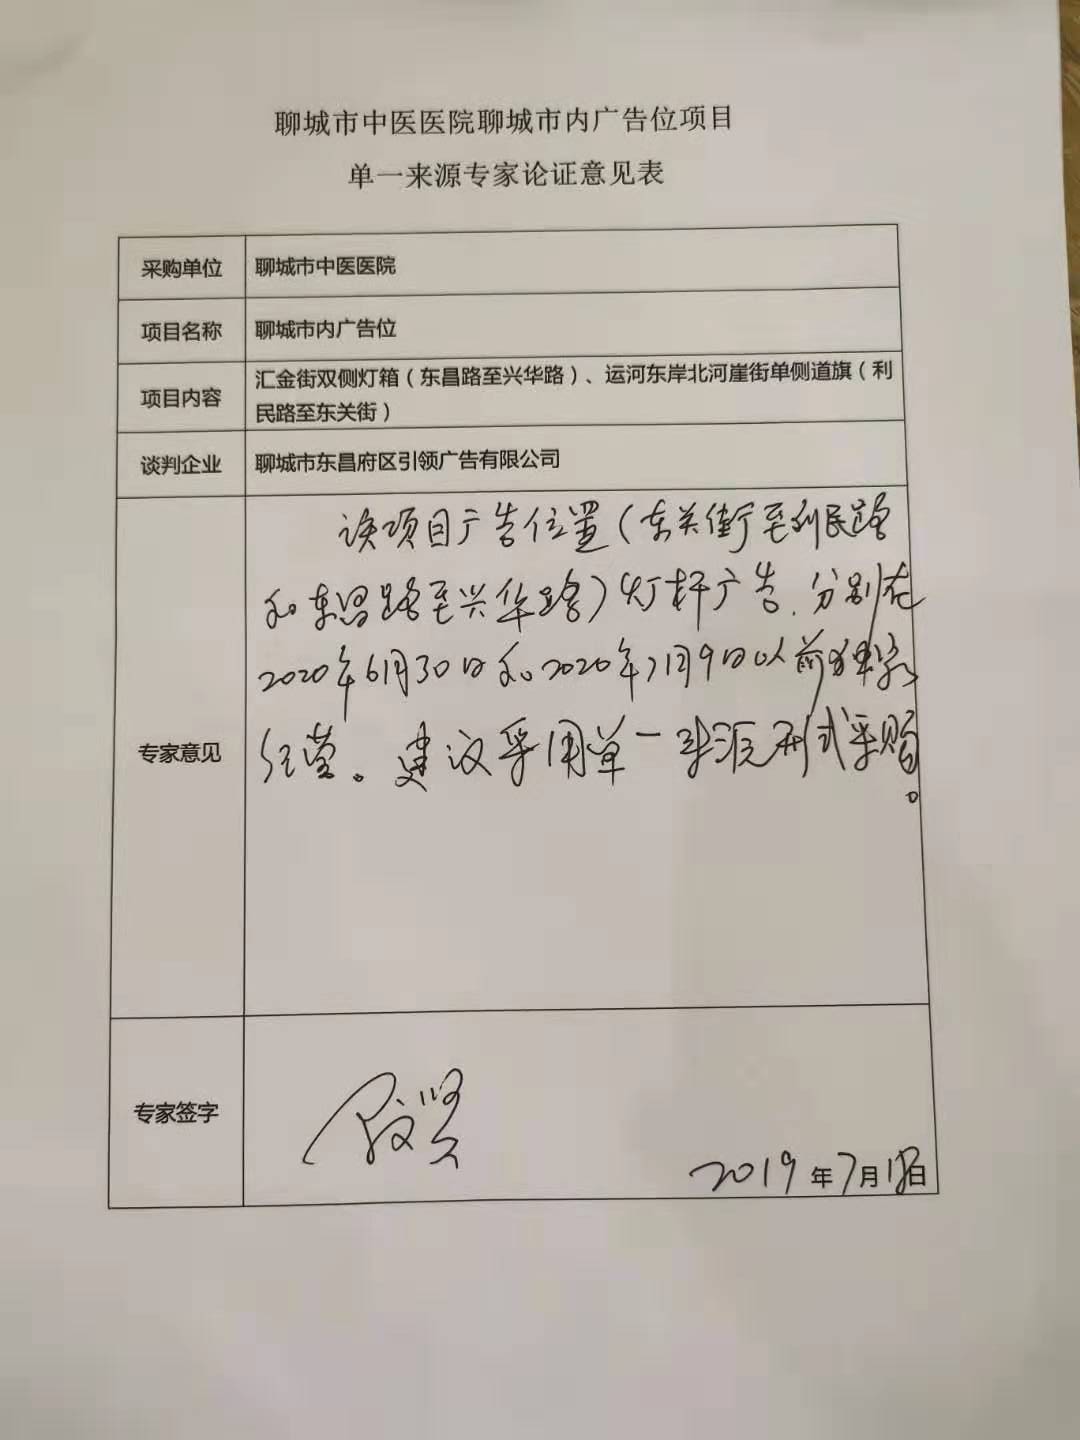 聊城市中医医院聊城市内广告位项目
单一来源专家论证意见表
采购单位
聊城市中医医院
项目名称
聊城市内广告位
项目内容
汇金街双侧灯箱（东昌路至兴华路）、运河东岸北河崖街单侧道旗（利
民路至东关街）
谈判企业
聊城市东昌府区引领广告有限公司
专家意见
该项目广告位置（东关街至利民路
和东昌路至兴华路）灯杆广告，分别在
2020年6月30日和2020年7月9日以前独家
经营。建议采用单一来源形式采购。
专家签字
2019年7月18日